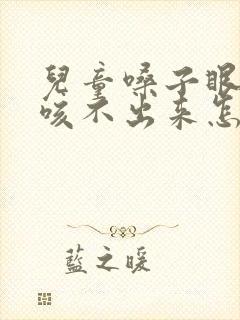 兒童嗓子眼
咳不出来怎
藍之暖